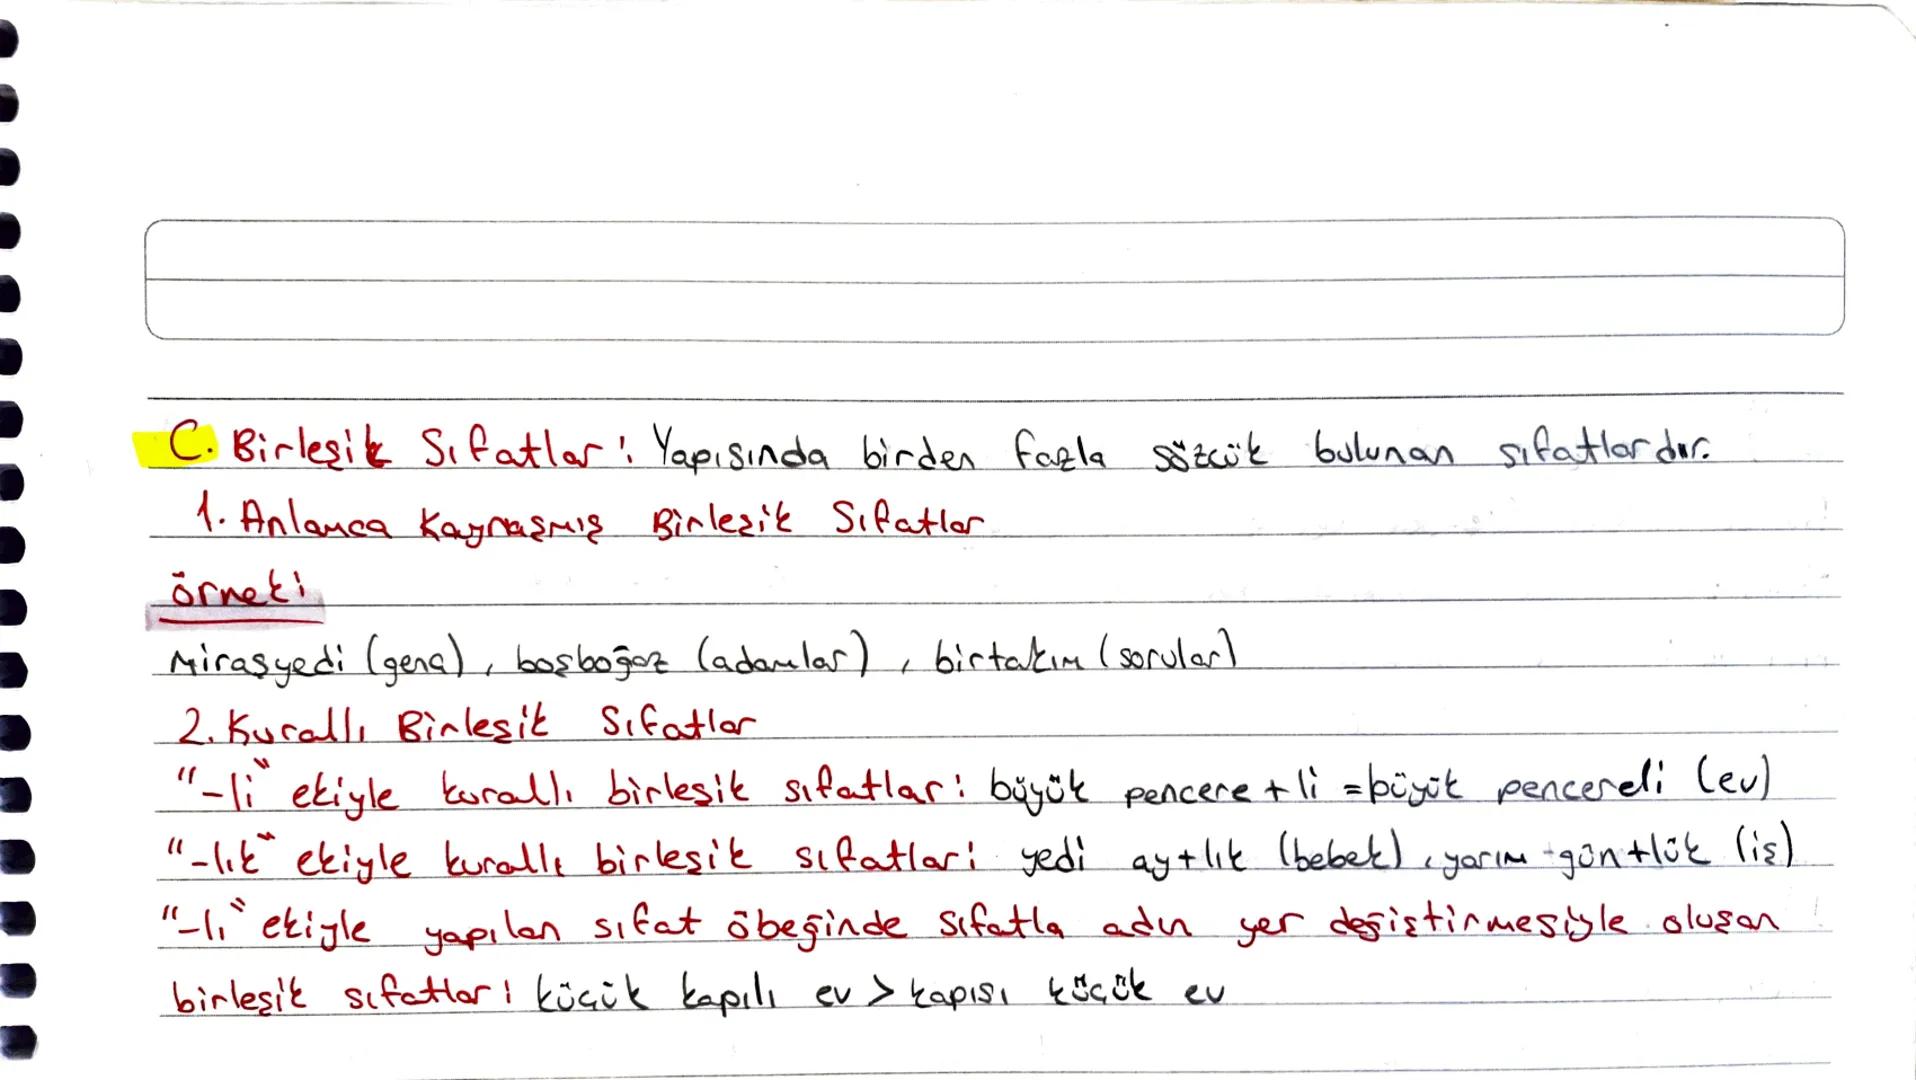 C. Birleşik Sıfatlar: Yapısında birden fazla sözcük bulunan sıfatlardır.
1. Anlamca Kaynaşmış Birleşik Sıfatlar
örnek:
Mirasyedi (genç), boşboğaz (adamlar), birtakım (sorular)
2. Kurallı Birleşik Sıfatlar
"-li" ekiyle kurallı birleşik sıfatlar: büyük pencere + li = büyük pencereli (ev)
"-lık" ekiyle kurallı birleşik sıfatlar: yedi ay+lık (bebek), yarım gün+lük (iş)
"-lı" ekiyle yapılan sıfat öbeğinde sıfatla adın yer değiştirmesiyle oluşan
birleşik sıfatlar: küçük kapılı ev > kapısı küçük ev